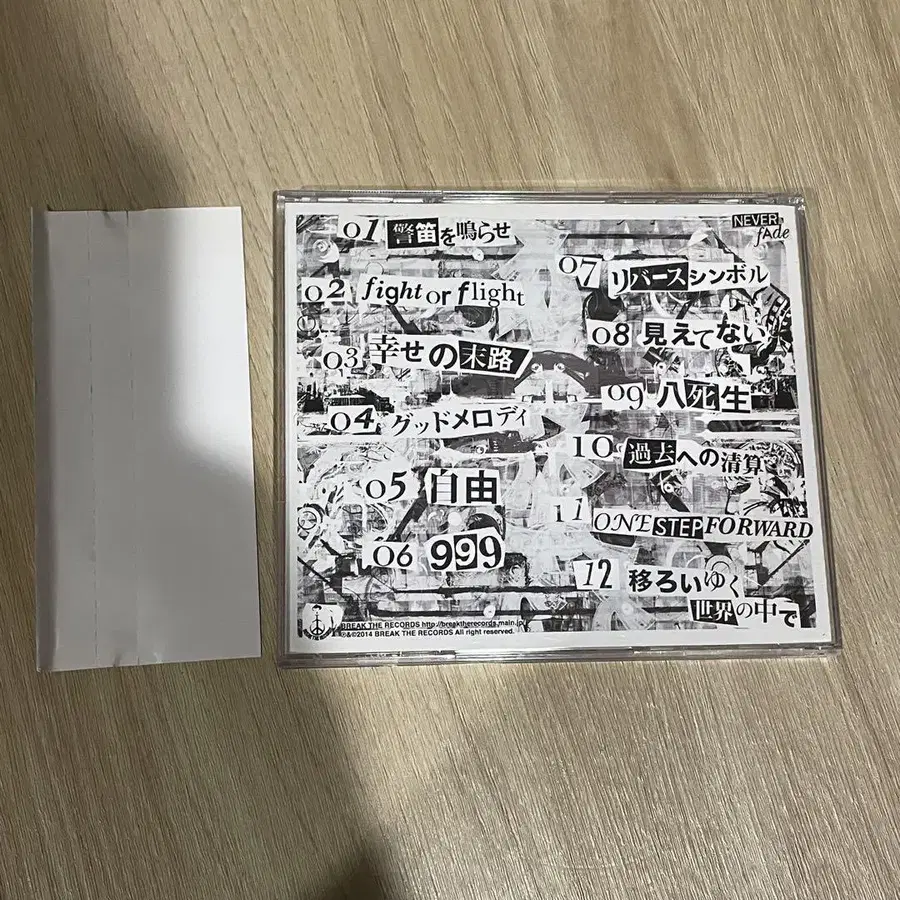 01 警笛を鳴らせ
02 fight or flight
03 幸せの末路
04 グッドメロディ
05 自由
06 999
NEVER
fAde
07 リバースシンボル
08 見えてない
09 八死生
10 過去への清算
11 ONE STEP FORWARD
12 移ろいゆく
世界の中で
BREAK THE RECORDS http://breaktherecords.main.jp
℗&©2014 BREAK THE RECORDS All right reserved.